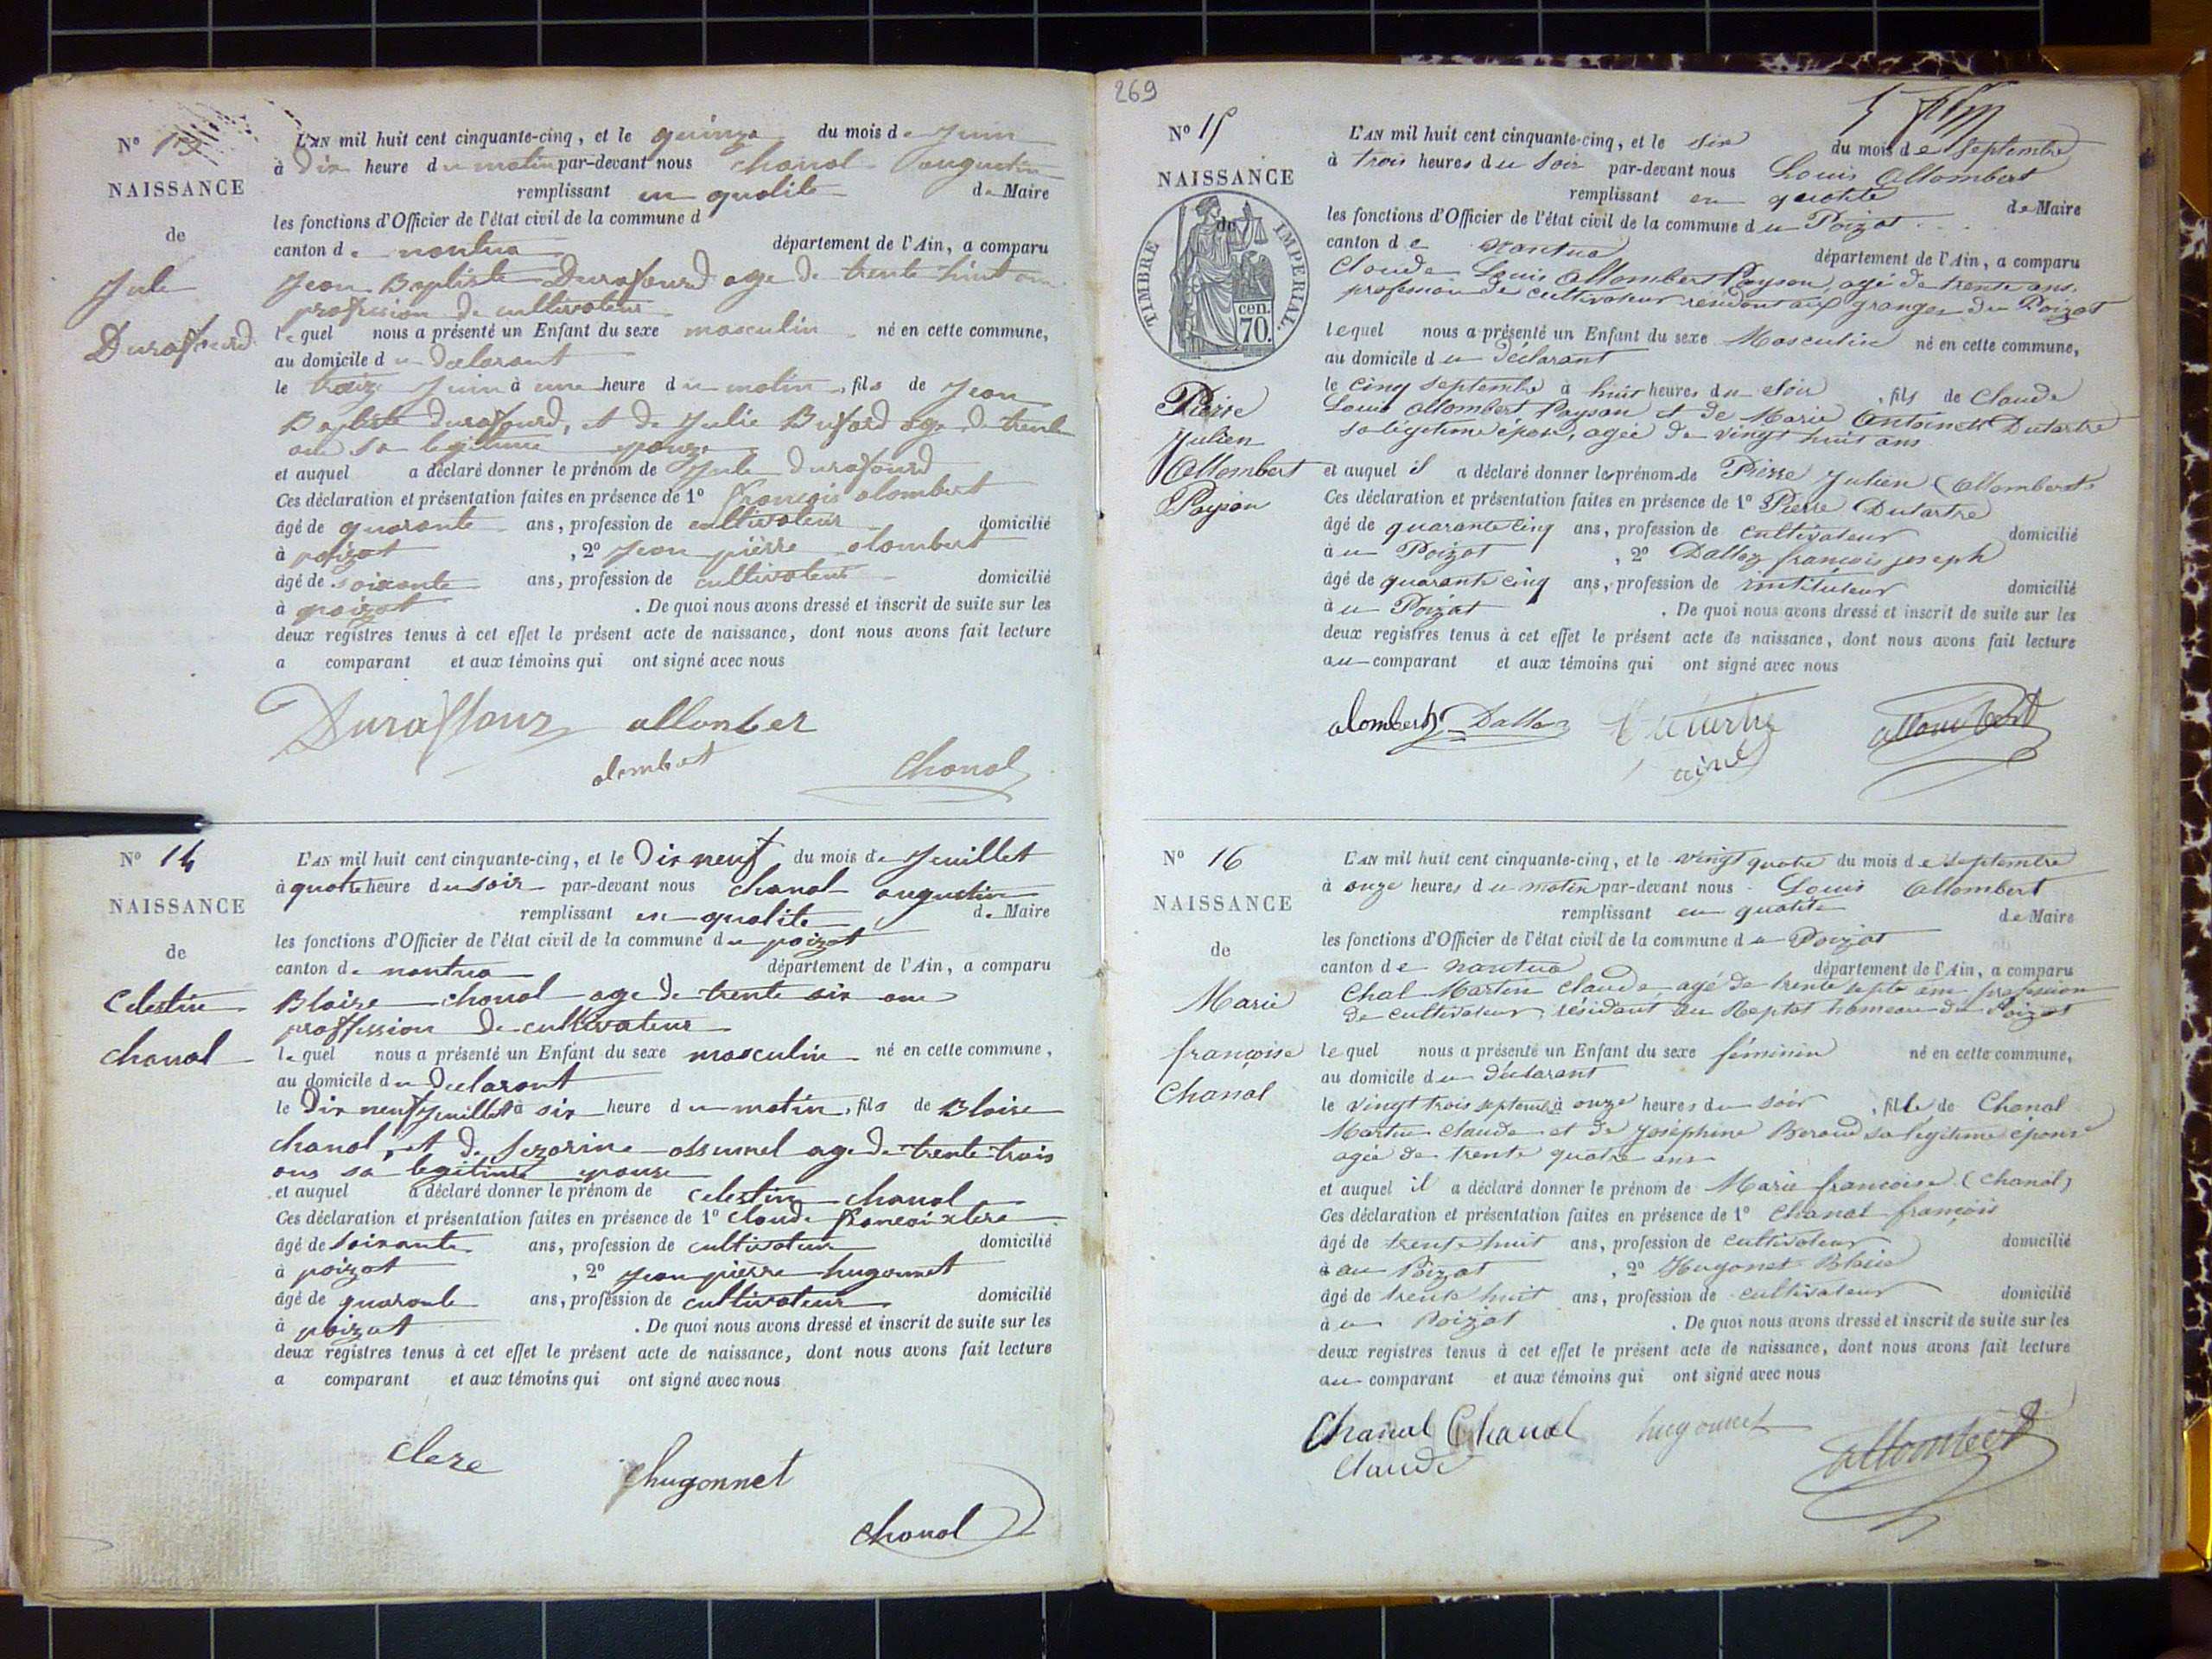 N° 13
NAISSANCE
de
Jule
Durafourd
L'AN mil huit cent cinquante-cinq, et le quinze du mois de Juin
à Dix heure du matin par-devant nous chanal augustin
remplissant en qualite de Maire
les fonctions d'Officier de l'état civil de la commune d
canton de nantua département de l'Ain, a comparu
Jean Baptiste Durafourd age de trente huit an
profession de cultivateur
lequel nous a présenté un Enfant du sexe masculin né en cette commune,
au domicile du declarant
le treize Juin à une heure du matin, fils de Jean
Baptiste durafourd, et de Julie Bufard age de trente
ans sa legitime epouze
et auquel a déclaré donner le prénom de Jule durafourd
Ces déclaration et présentation faites en présence de 1° françois alombert
âgé de quarante ans, profession de cultivateur domicilié
à poizat, 2° Jean pierre alombert
âgé de soixante ans, profession de cultivateur domicilié
à poizat. De quoi nous avons dressé et inscrit de suite sur les
deux registres tenus à cet effet le présent acte de naissance, dont nous avons fait lecture
a comparant et aux témoins qui ont signé avec nous
Duraflour allonber
alembert Chanal
N° 14
NAISSANCE
de
Celestin
chanal
L'AN mil huit cent cinquante-cinq, et le Dix neuf du mois de Juillet
à quatre heure du soir par-devant nous chanal augustin
remplissant en qualite de Maire
les fonctions d'Officier de l'état civil de la commune du poizat
canton de nantua département de l'Ain, a comparu
Blaize chanal age de trente six ans
proffession de cultivateur
lequel nous a présenté un Enfant du sexe masculin né en cette commune,
au domicile du declarant
le Dix neuf Juillet à six heure du matin, fils de Blaise
chanal, et de age de trente trois
ans sa legitime epouse
et auquel a déclaré donner le prénom de celestin chanal
Ces déclaration et présentation faites en présence de 1° claude françoix clere
âgé de soixante ans, profession de cultivateur domicilié
à poizat, 2° Jean pierre hugonnet
âgé de quarante ans, profession de cultivateur domicilié
à poizat. De quoi nous avons dressé et inscrit de suite sur les
deux registres tenus à cet effet le présent acte de naissance, dont nous avons fait lecture
a comparant et aux témoins qui ont signé avec nous
clere
hugonnet
chanal
269
N° 15
NAISSANCE
de
TIMBRE IMPERIAL.
70. cen.
Pierre
Julien
Allombert
Payson
L'AN mil huit cent cinquante-cinq, et le six du mois de septembre
à trois heures du soir par-devant nous Louis Allombert
remplissant en qualité de Maire
les fonctions d'Officier de l'état civil de la commune du Poizat
canton de Nantua département de l'Ain, a comparu
Claude Louis Allombert Payson, agé de trente ans,
profession de cultivateur résidant aux granges du Poizat
lequel nous a présenté un Enfant du sexe Masculin né en cette commune,
au domicile du déclarant
le cinq septembre à huit heures du soir, fils de Claude
Louis Allombert Payson et de Marie Antoinette Dutartre
sa légitime épouse, agée de vingt huit ans
et auquel il a déclaré donner le prénom de Pierre Julien (Allombert)
Ces déclaration et présentation faites en présence de 1° Pierre Dutartre
âgé de quarante cinq ans, profession de cultivateur domicilié
à u Poizat, 2° Dalloz françois joseph
âgé de quarante cinq ans, profession de instituteur domicilié
à u Poizat. De quoi nous avons dressé et inscrit de suite sur les
deux registres tenus à cet effet le présent acte de naissance, dont nous avons fait lecture
au comparant et aux témoins qui ont signé avec nous
alombert Dalloz Dutartre allombert
ainé
N° 16
NAISSANCE
de
Marie
françoise
Chanal
L'AN mil huit cent cinquante-cinq, et le vingt quatre du mois de septembre
à onze heures du matin par-devant nous Louis Allombert
remplissant en qualité de Maire
les fonctions d'Officier de l'état civil de la commune du Poizat
canton de nantua département de l'Ain, a comparu
Chal Martin Claude agé de trente sept ans profession
de cultivateur, résidant au Replat hameau du Poizat
lequel nous a présenté un Enfant du sexe féminin né en cette commune,
au domicile du déclarant
le vingt trois septembre à onze heures du soir, fille de Chanal
Martin Claude et de Joséphine Beraud sa légitime épouse
agée de trente quatre ans
et auquel il a déclaré donner le prénom de Marie françoise (Chanal)
Ces déclaration et présentation faites en présence de 1° Chanal françois
âgé de trente huit ans, profession de cultivateur domicilié
à au Poizat, 2° Hugonet Blaise
âgé de trente huit ans, profession de cultivateur domicilié
à u Poizat. De quoi nous avons dressé et inscrit de suite sur les
deux registres tenus à cet effet le présent acte de naissance, dont nous avons fait lecture
au comparant et aux témoins qui ont signé avec nous
Chanal Chanal hugonnet allombert
claude